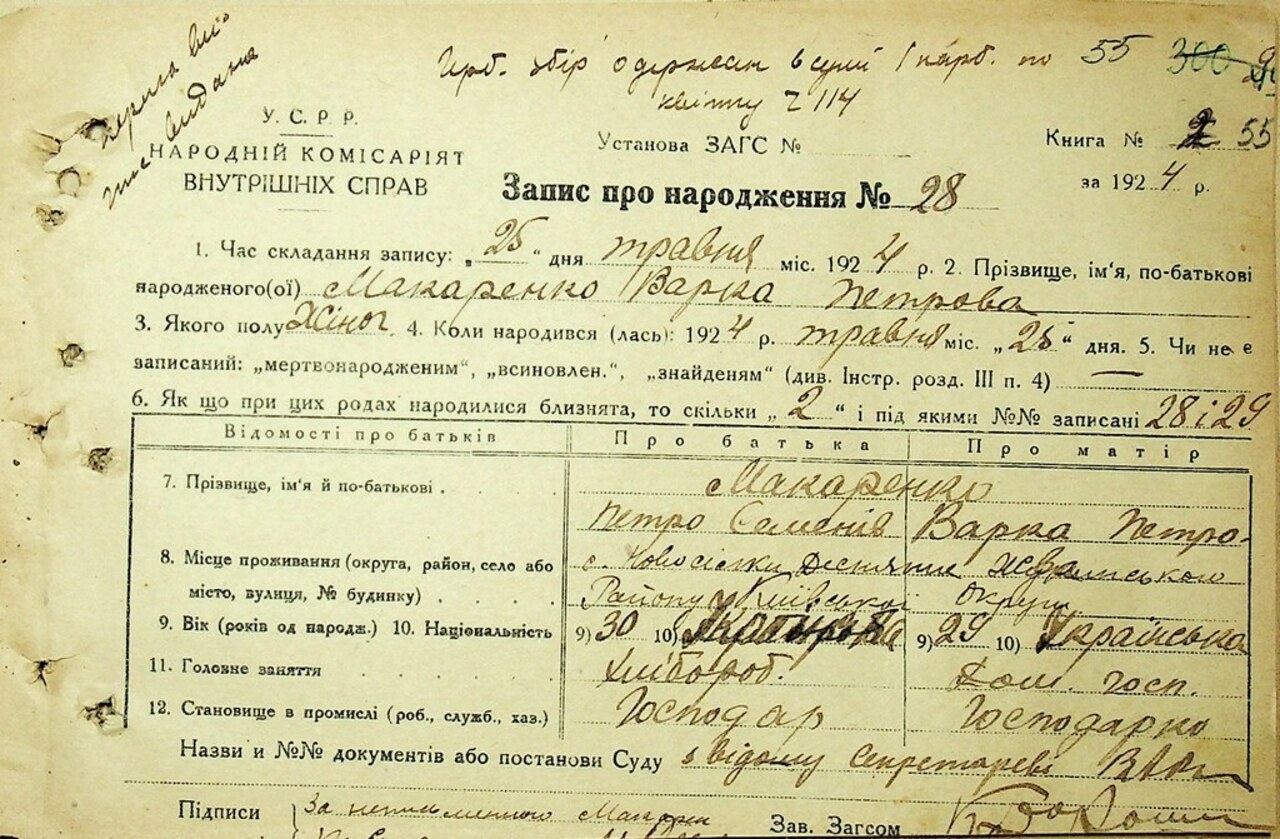 перша ви-
пис видана
Герб. збір одержан в сумі 1 карб. по 55 300
квітку № 114
У. С. Р. Р.
НАРОДНІЙ КОМІСАРІЯТ
ВНУТРІШНІХ СПРАВ
Установа ЗАГС №
Книга № 2 55
за 1924 р.
Запис про народження № 28
1. Час складання запису: „25“ дня травня міс. 1924 р. 2. Прізвище, ім'я, по-батькові
народженого(ої) Макаренко Варка Петрова
3. Якого полу Жіног. 4. Коли народився (лась): 1924 р. травня міс. „23“ дня. 5. Чи не є
записаний: „мертвонародженим“, „всиновлен.“, „знайденям“ (див. Інстр. розд. III п. 4) —
6. Як що при цих родах народилися близнята, то скільки „2“ і під якими №№ записані 28 і 29
Відомості про батьків Про батька Про матір
7. Прізвище, ім'я й по-батькові . Макаренко
Петро Семенів Варка Петро-
8. Місце проживання (округа, район, село або с. Новосілки
місто, вулиця, № будинку) . Району Київської округи
9. Вік (років од народж.) 10. Національність 9) 30 10) 9) 29 10) Українська
11. Головне заняття Хлібороб. Дом. госп.
12. Становище в промислі (роб., служб., хаз.) Господар Господарка
Назви и №№ документів або постанови Суду з відому Секретареві
Підписи За неписьменного Макарен
Зав. Загсом